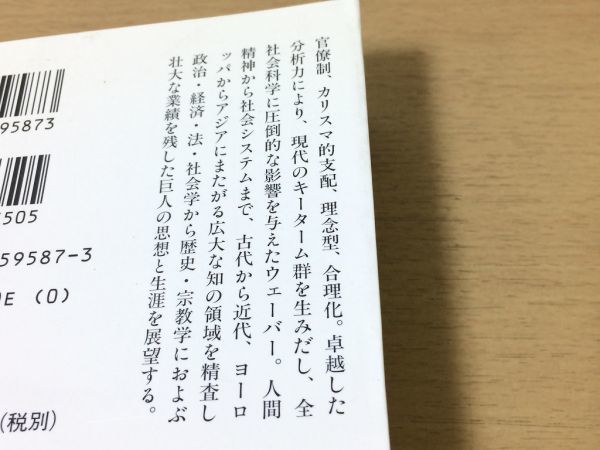 官僚制、カリスマ的支配、理念型、合理化。卓越した
分析力により、現代のキーターム群を生みだし、全
社会科学に圧倒的な影響を与えたウェーバー。人間
精神から社会システムまで、古代から近代、ヨーロ
ッパからアジアにまたがる広大な知の領域を精査し
政治・経済・法・社会学から歴史・宗教学におよぶ
壮大な業績を残した巨人の思想と生涯を展望する。
95873
505
59587-3
E (0)
(税別)